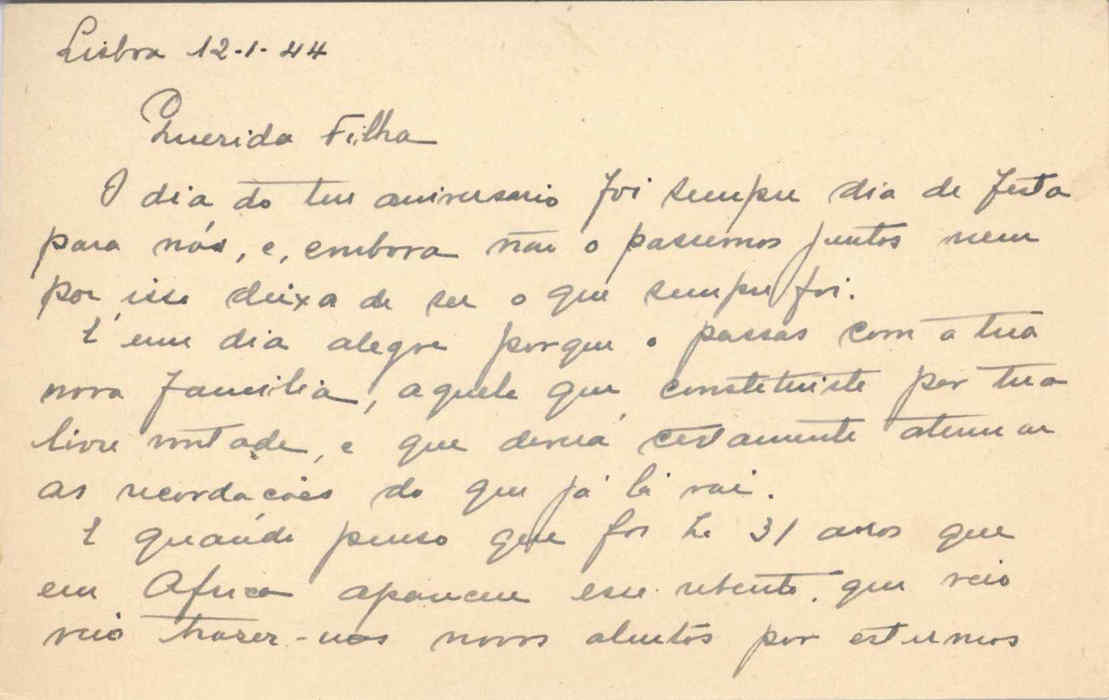 Lisboa 12-1-44
Querida Filha
O dia do teu aniversario foi sempre dia de festa
para nós, e, embora não o passemos juntos nem
por isso deixa de ser o que sempre foi.
É um dia alegre porque o passas com a tua
nova familia, aquela que constetuiste por tua
livre vontade, e que deverá certamente atenuar
as recordações do que já lá vai.
E quando penso que foi há 31 anos que
em Africa apareceu esse rebento, que veio
veio trazer-nos novos alentos por estarmos